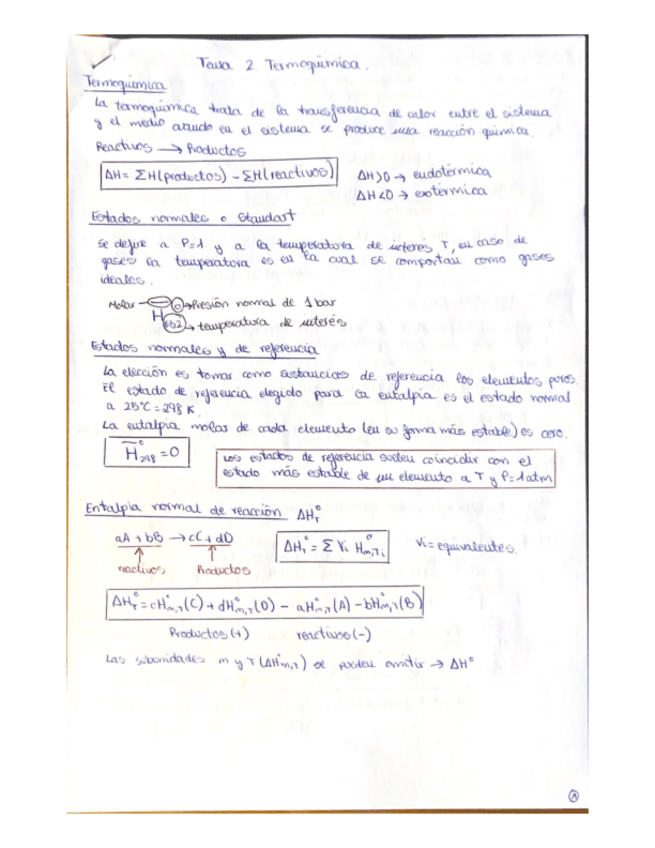 Tema 2. Termoquímica.
Termoquímica
La termoquímica trata de la transferencia de calor entre el sistema
y el medio cuando en el sistema se produce una reacción química.
Reactivos → Productos
ΔH = ΣH(productos) - ΣH(reactivos)
ΔH>0 → endotérmica
ΔH<0 → exotérmica
Estados normales o standart
se define a P=1 y a la temperatura de interés T, en caso de
gases la temperatura es en la cual se comportan como gases
ideales.
Molar
o → Presión normal de 1 bar
H
→ temperatura de interés
Estados normales y de referencia
La elección es tomar como sustancias de referencia los elementos puros.
El estado de referencia elegido para la entalpia es el estado normal
a 25°C = 298 K.
La entalpia molar de cada elemento (en su forma más estable) es cero.
H̅°298 = 0
Los estados de referencia suelen coincidir con el
estado más estable de un elemento a T y P=1atm
Entalpia normal de reacción ΔH°T
aA + bB → cC + dD
reactivos Productos
ΔH°T = Σ Vi H°m,Ti
Vi = equivalentes.
ΔH°T = cH°m,T(C) + dH°m,T(D) - aH°m,T(A) - bH°m,T(B)
Productos (+) reactivos (-)
Las subunidades m y T (ΔH°m,T) se pueden omitir → ΔH°
1